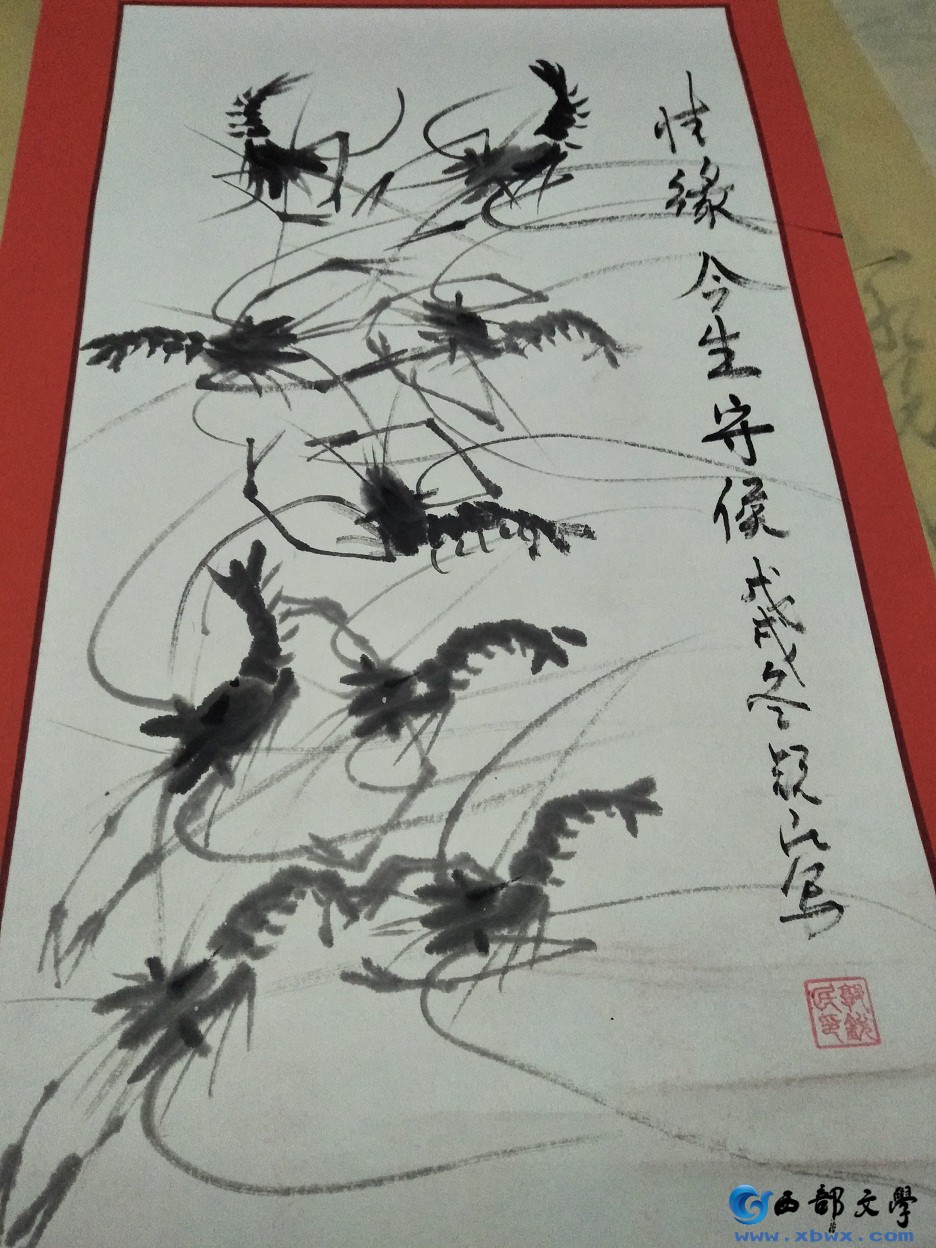 情緣今生守候戊戌冬写
西部文學
www.xbwx.com